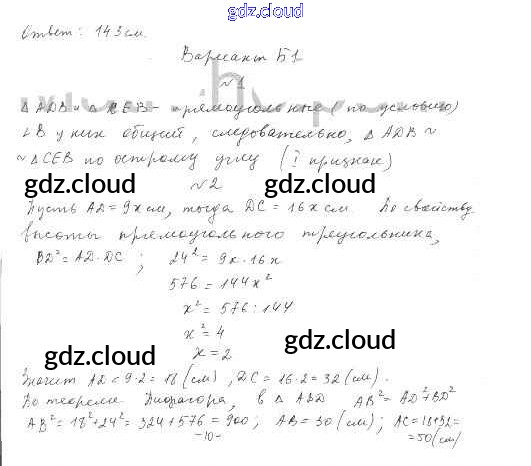 gdz.cloud
Ответ: 143 см.
Вариант Б1
№1
△ ADB и △ CEB - прямоугольные (по условию)
∠B у них общий, следовательно, △ ADB ~
~ △ CEB по острому углу (I признак)
gdz.cloud gdz.cloud
№2
Пусть AD = 9x см, тогда DC = 16x см. По свойству
высоты прямоугольного треугольника,
BD² = AD · DC ; 24² = 9x · 16x
576 = 144x²
x² = 576 : 144
x² = 4
gdz.cloud
x = 2
gdz.cloud
Значит AD = 9 · 2 = 18 (см), DC = 16 · 2 = 32 (см).
По теореме Пифагора, в △ ABD AB² = AD² + BD²
AB² = 18² + 24² = 324 + 576 = 900 ; AB = 30 (см) ; AC = 18 + 32 =
-10-
= 50 (см)